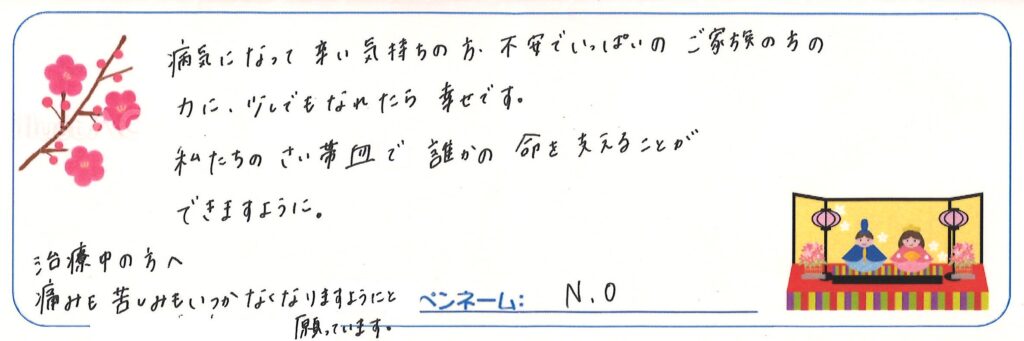 病気になって辛い気持ちの方、不安でいっぱいのご家族の方の
力に、少しでもなれたら幸せです。
私たちのさい帯皿で誰かの命を支えることが
できますように。
治療中の方へ
痛みも苦しみもいつかなくなりますようにと
願っています。
ペンネーム: N.O